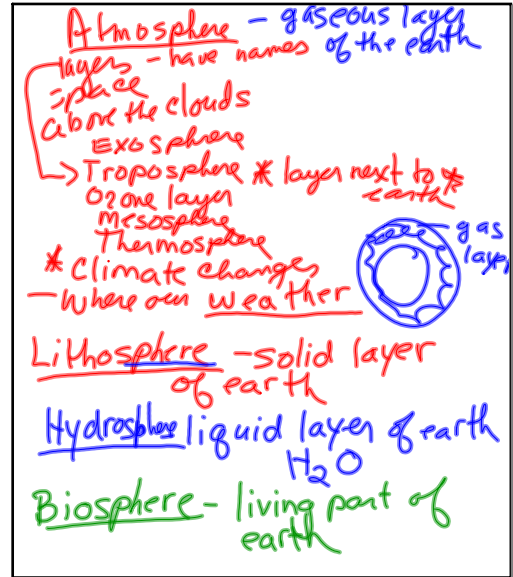 Atmosphere - gaseous layer
of the earth
layers - have names
space
above the clouds
Exosphere
Troposphere * layer next to *
earth
Ozone layer
mesosphere
Thermosphere
* Climate changes
- Where our weather
gas
layer
Lithosphere - solid layer
of earth
Hydrosphere liquid layer of earth
H2O
Biosphere - living part of
earth